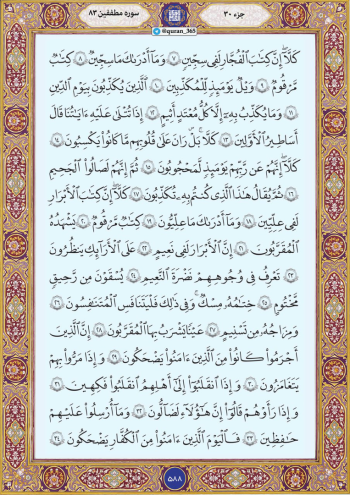 جزء ۳۰
@quran_365
سوره مطففین ۸۳
كَلَّآ إِنَّ كِتَٰبَ ٱلْفُجَّارِ لَفِى سِجِّينٍ ۷ وَمَآ أَدْرَىٰكَ مَا سِجِّينٌ ۸ كِتَٰبٌ
مَّرْقُومٌ ۹ وَيْلٌ يَوْمَئِذٍ لِّلْمُكَذِّبِينَ ۱۰ ٱلَّذِينَ يُكَذِّبُونَ بِيَوْمِ ٱلدِّينِ
۱۱ وَمَا يُكَذِّبُ بِهِۦٓ إِلَّا كُلُّ مُعْتَدٍ أَثِيمٍ ۱۲ إِذَا تُتْلَىٰ عَلَيْهِ ءَايَٰتُنَا قَالَ
أَسَٰطِيرُ ٱلْأَوَّلِينَ ۱۳ كَلَّا ۖ بَلْ ۜ رَانَ عَلَىٰ قُلُوبِهِم مَّا كَانُوا۟ يَكْسِبُونَ ۱۴
كَلَّآ إِنَّهُمْ عَن رَّبِّهِمْ يَوْمَئِذٍ لَّمَحْجُوبُونَ ۱۵ ثُمَّ إِنَّهُمْ لَصَالُوا۟ ٱلْجَحِيمِ
۱۶ ثُمَّ يُقَالُ هَٰذَا ٱلَّذِى كُنتُم بِهِۦ تُكَذِّبُونَ ۱۷ كَلَّآ إِنَّ كِتَٰبَ ٱلْأَبْرَارِ
لَفِى عِلِّيِّينَ ۱۸ وَمَآ أَدْرَىٰكَ مَا عِلِّيُّونَ ۱۹ كِتَٰبٌ مَّرْقُومٌ ۲۰ يَشْهَدُهُ
ٱلْمُقَرَّبُونَ ۲۱ إِنَّ ٱلْأَبْرَارَ لَفِى نَعِيمٍ ۲۲ عَلَى ٱلْأَرَآئِكِ يَنظُرُونَ
۲۳ تَعْرِفُ فِى وُجُوهِهِمْ نَضْرَةَ ٱلنَّعِيمِ ۲۴ يُسْقَوْنَ مِن رَّحِيقٍ
مَّخْتُومٍ ۲۵ خِتَٰمُهُۥ مِسْكٌ ۚ وَفِى ذَٰلِكَ فَلْيَتَنَافَسِ ٱلْمُتَنَٰفِسُونَ ۲۶
وَمِزَاجُهُۥ مِن تَسْنِيمٍ ۲۷ عَيْنًا يَشْرَبُ بِهَا ٱلْمُقَرَّبُونَ ۲۸ إِنَّ ٱلَّذِينَ
أَجْرَمُوا۟ كَانُوا۟ مِنَ ٱلَّذِينَ ءَامَنُوا۟ يَضْحَكُونَ ۲۹ وَإِذَا مَرُّوا۟ بِهِمْ
يَتَغَامَزُونَ ۳۰ وَإِذَا ٱنقَلَبُوٓا۟ إِلَىٰٓ أَهْلِهِمُ ٱنقَلَبُوا۟ فَكِهِينَ ۳۱
وَإِذَا رَأَوْهُمْ قَالُوٓا۟ إِنَّ هَٰٓؤُلَآءِ لَضَآلُّونَ ۳۲ وَمَآ أُرْسِلُوا۟ عَلَيْهِمْ
حَٰفِظِينَ ۳۳ فَٱلْيَوْمَ ٱلَّذِينَ ءَامَنُوا۟ مِنَ ٱلْكُفَّارِ يَضْحَكُونَ ۳۴
۵۸۸